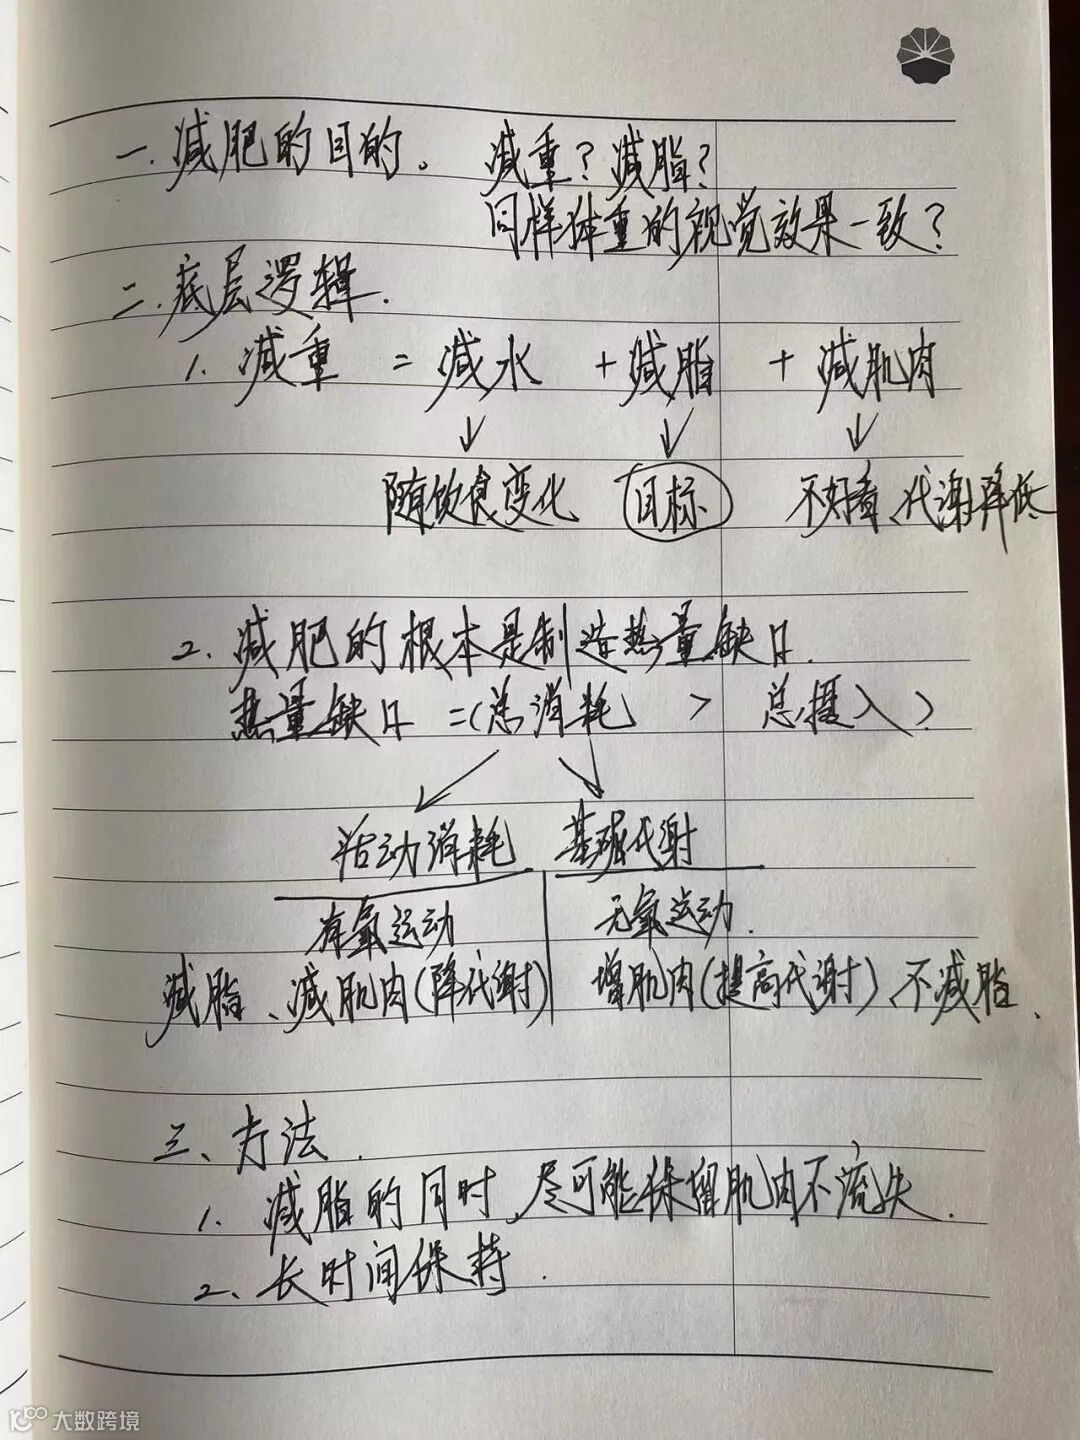 一.减肥的目的。 减重？减脂？
同样体重的视觉效果一致？
二.底层逻辑.
1. 减重 = 减水 + 减脂 + 减肌肉
随饮食变化 目标 不好看、代谢降低
2. 减肥的根本是制造热量缺口.
热量缺口 =(总消耗 > 总摄入)
活动消耗 基础代谢
有氧运动 无氧运动.
减脂、减肌肉(降代谢) 增肌肉(提高代谢)、不减脂、
三、方法.
1. 减脂的同时,尽可能保增肌肉不流失.
2、长时间保持.
大数跨境